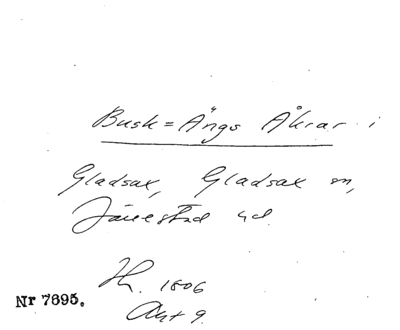 Busk=Ängs Åkrar i
Gladsax, Gladsax sn,
Järrestad hd.
Hh. 1806
Akt 9.
Nr 7895.